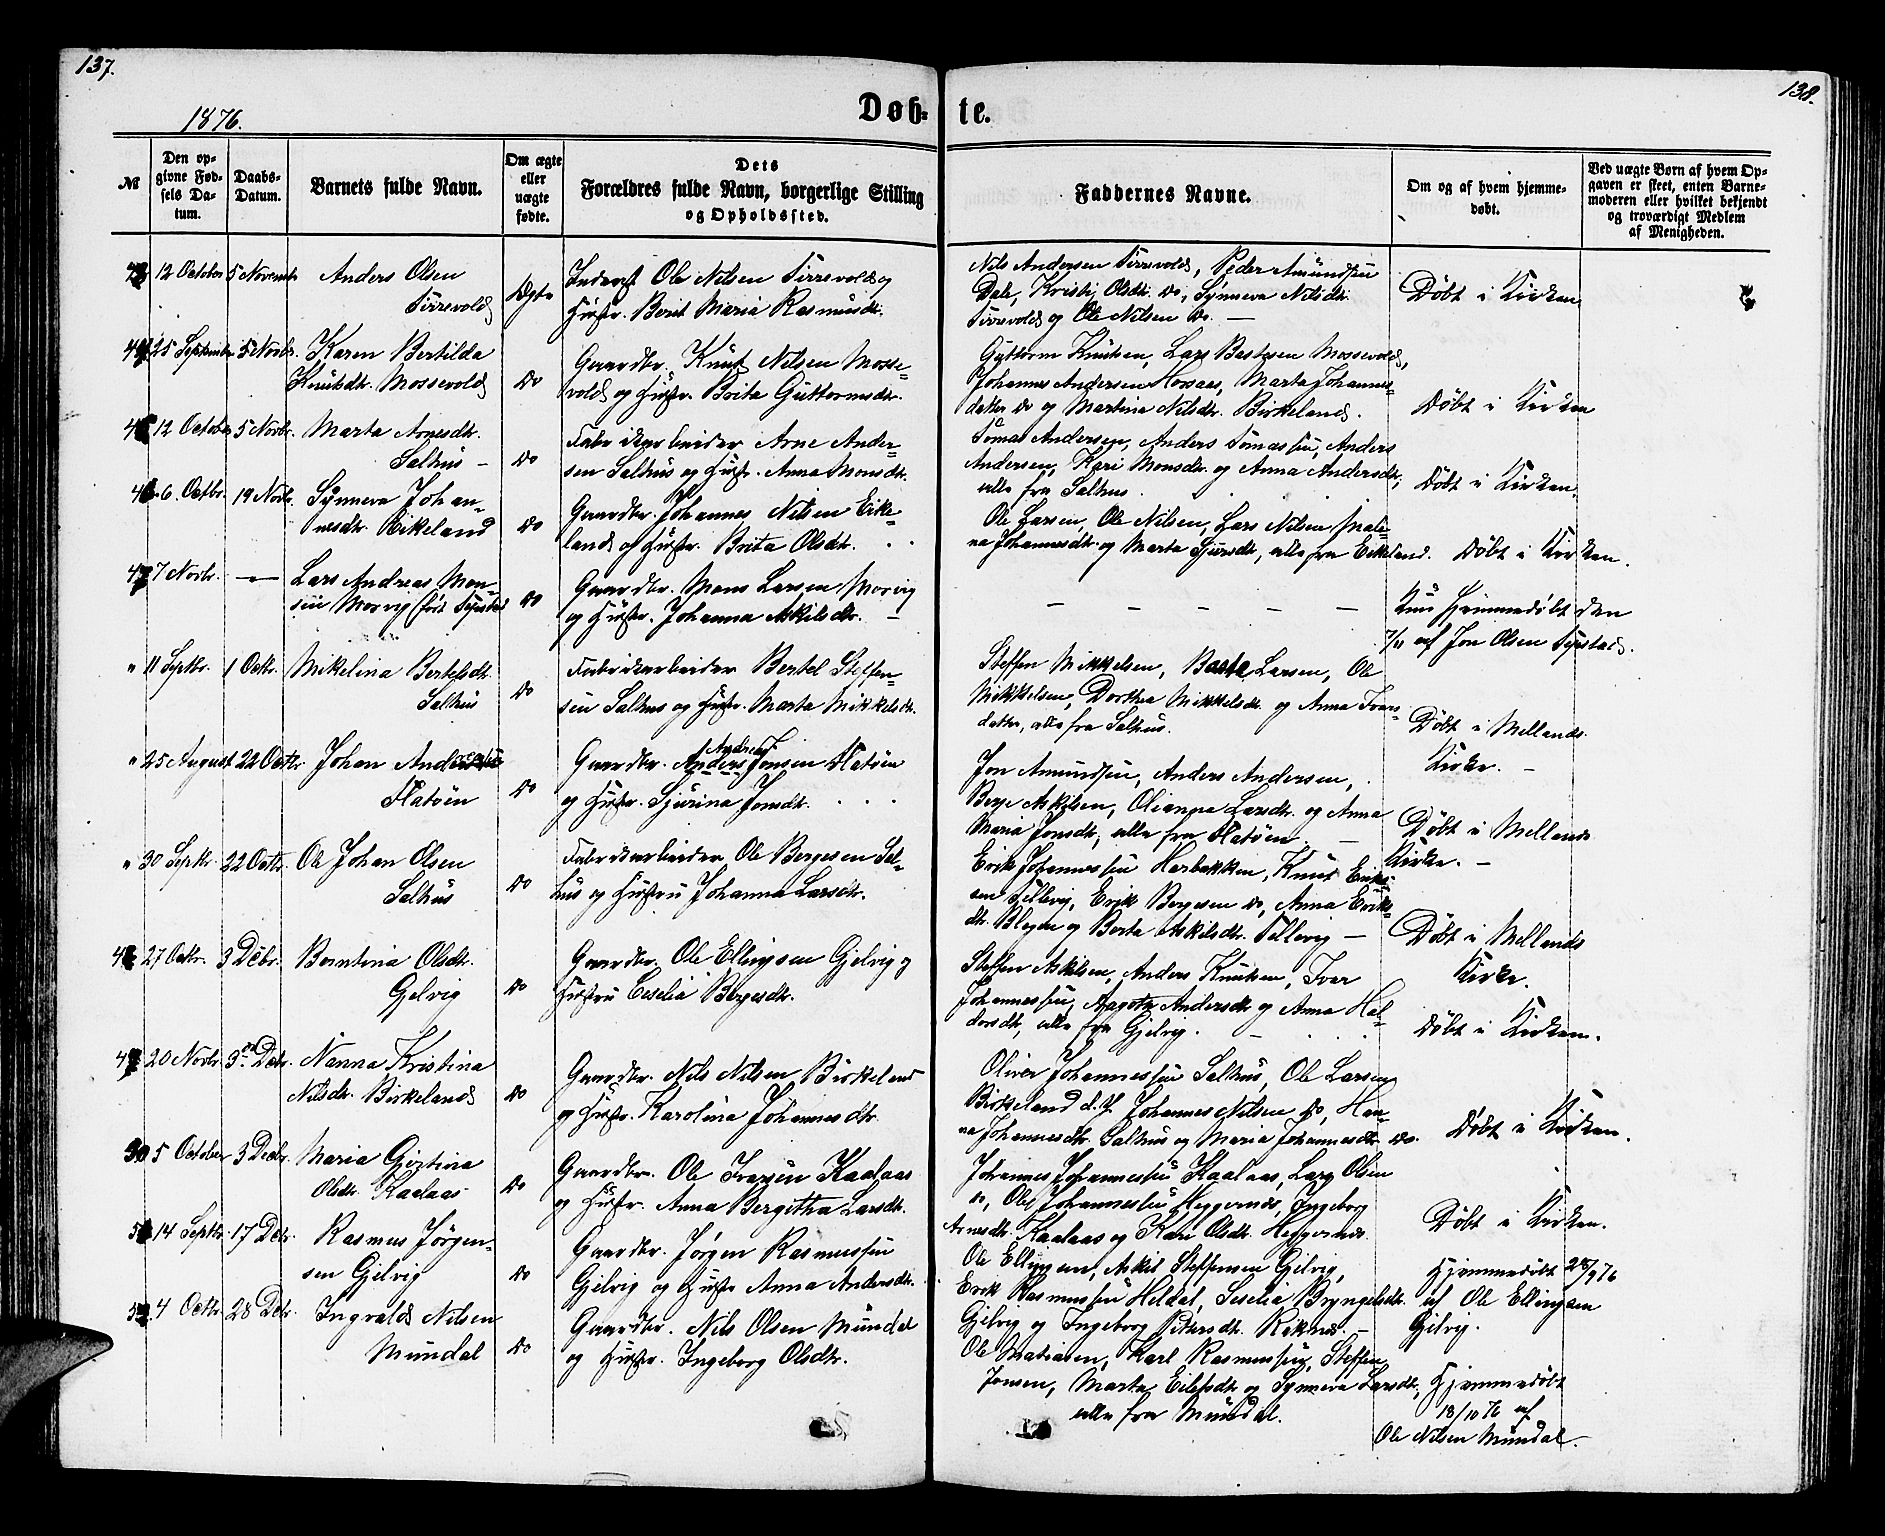 137.
138.
1876.
Døb-
te.
№
Den op-
givne Fød-
sels Da-
tum.
Daabs-
Datum.
Barnets fulde Navn.
Om ægte
eller
uægte
fødte.
Dets
Forældres fulde Navn, borgerlige Stilling
og Opholdssted.
Faddernes Navne.
Om og af hvem hjemme-
døbt.
Ved uægte Børn af hvem Op-
gaven er skeet, enten Barne-
moderen eller hvilket bekjendt
og troværdigt Medlem
af Menigheden.
12 October 5 November Anders Olsen
Tirrevold
Ægte
Ole Nilsen Tirrevold og
Hustr. Berit Maria Rasmusdtr.
Nils Andersen Tirrevold, Peder Amundsen
Dale, Kristi Olsdtr. do, Synneva Nilsdtr.
Tirrevold og Ole Nilsen do. —
Døbt i Kirken
25 September 5 Novbr. Karen Bertilda
Knutsdtr. Mossevold
do
Gaardbr. Knut Nilsen Mosse-
vold og Hustr. Brita Guttormsdtr.
Guttorm Knutsen, Lars Bastesen Mossevold,
Johannes Andersen Horsaas, Marta Johannes-
datter do og Martina Nilsdtr. Birkeland.
Døbt i Kirken
12 October 5 Novbr. Marta Arnesdtr.
Salhus —
do
Fabrikarbeider Arne Ander-
sen Salhus og Hustr. Anna Monsdtr.
Tomas Andersen, Anders Tomassen, Anders
Andersen, Kari Monsdtr. og Anna Andersdtr,
alle fra Salhus.
Døbt i Kirken.
6. Octbr. 19 Novbr. Synneva Johan-
nesdtr. Eikeland
do
Gaardbr. Johannes Nilsen Eike-
land og Hustr. Brita Olsdtr.
Ole Larsen, Ole Nilsen, Lars Nilsen, Male-
na Johannesdtr. og Marta Sjursdtr, alle fra Eikeland.
Døbt i Kirken.
47 7 Novbr. — Lars Andreas Mon-
sen Morvig
do
Gaardbr. Mons Larsen Morvig
og Hustr. Johanna Askilsdtr. —
— — — — —
Kun Hjemmedøbt den
7/11 af Jon Olsen
" 11 Septbr. 1 Octbr. Mikelina Bertelsdtr.
Salhus
do
Fabrikarbeider Bertel Steffen-
sen Salhus og Hustr. Marta Mikkelsdtr.
Steffen Mikkelsen, Larsen, Ole
Mikkelsen, Dorthea Mikkelsdtr. og Anna Ivars-
datter, alle fra Salhus.
Døbt i Mellands
Kirke. —
" 25 August 22 Octbr. Johan
Flatøen
do
Andreas
Gaardbr. Anders Jonsen Flatøen
og Hustr. Sjurina Jonsdtr. . . .
Jon Amundsen, Anders Andersen,
Berje Askilsen, Olianna Larsdtr. og Anna
Maria Jonsdtr, alle fra Flatøen. —
Døbt i Mellands
Kirke. —
" 30 Septbr. 22 Octbr. Ole Johan Olsen
Salhus
do
Fabrikarbeider Ole Bergesen Sal-
hus og Hustru Johanna Larsdtr.
Erik Johannessen Harbakken, Knut Erik-
sen Tellevig, Erik Bergesen do, Anna Eriks-
dtr. og Berta Askilsdtr. Tellevig —
Døbt i Mellands
Kirke.
27 Octbr. 3 Debr. Berntina Olsdtr.
Gjelvig
do
Gaardbr. Ole Ellingsen Gjelvig og
Hustru Ceselia Bergesdtr.
Steffen Askilsen, Anders Knutsen, Ivar
Johannessen, Aagote Andersdtr og Anna Hal-
dorsdtr, alle fra Gjelvig.
Døbt i Kirken.
20 Novbr. 3 Debr. Nanna Kristina
Nilsdtr. Birkeland
do
Gaardbr. Nils Nilsen Birkeland
og Hustr. Karolina Johannesdtr.
Oliver Johannessen Salhus, Ole Larsen
Birkeland d.y. Johannes Nilsen do, Han-
na Johannesdtr. Salhus og Maria Johannesdtr. do.
Døbt i Kirken.
5 October 3 Decbr. Maria Gjertina
Olsdtr. Kaalaas
do
Gaardbr. Ole Ivarsen Kaalaas
og Hustr. Anna Bergitha Larsdtr.
Johannes Johannessen Kaalaas, Lars Olsen
do, Ole Johannessen Heggernes, Ingeborg
Arnesdtr. Kaalaas og Kari Olsdtr. Heggernes.
Døbt i Kirken.
14 Septbr. 17 Debr. Rasmus Jørgen-
sen Gjelvig
do
Gaardbr. Jørgen Rasmussen
Gjelvig og Hustr Anna Andersdtr.
Ole Ellingsen, Askil Steffensen Gjelvig,
Erik Rasmussen Heldal, Seselia Bryngelsdtr.
Gjelvig og Ingeborg Petersdtr. Reknes. —
Hjemmedøbt 28/9 76
af Ole Ellingsen
Gjelvig.
4 Octbr. 28 Debr. Ingvald Nilsen
Mundal
do
Gaardbr. Nils Olsen Mundal
og Hustr. Ingeborg Olsdtr.
Ole Matiasen, Karl Rasmussen, Steffen
Jonsen, Marta Eilefsdtr og Synneva Larsdtr,
alle fra Mundal.
Hjemmedøbt
18/10 76 af
Ole Nilsen Mundal. —